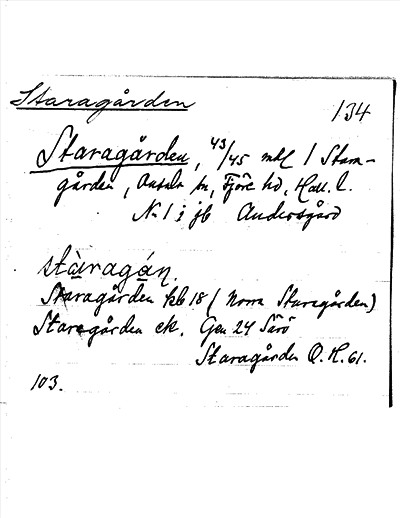 Staragården
134
Staragården, 43/45 mtl 1 Stom-
gården, Onsala sn, Fjäre hd, Hall. l.
No 1 i jb Andersgård
stàragán.
Staragården kb 18 (Norra Staragården)
Staragården ek. Gen 24 Särö
Staragården O.H. 61.
103.